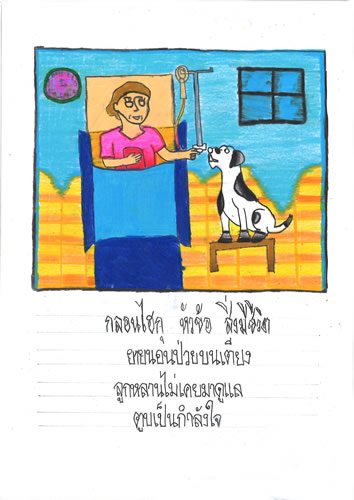 กลอนไฮกุ หัวข้อ สิ่งมีชีวิต
ยายนอนป่วยบนเตียง
ลูกหลานไม่เคยมาดูแล
ตูบเป็นกำลังใจ